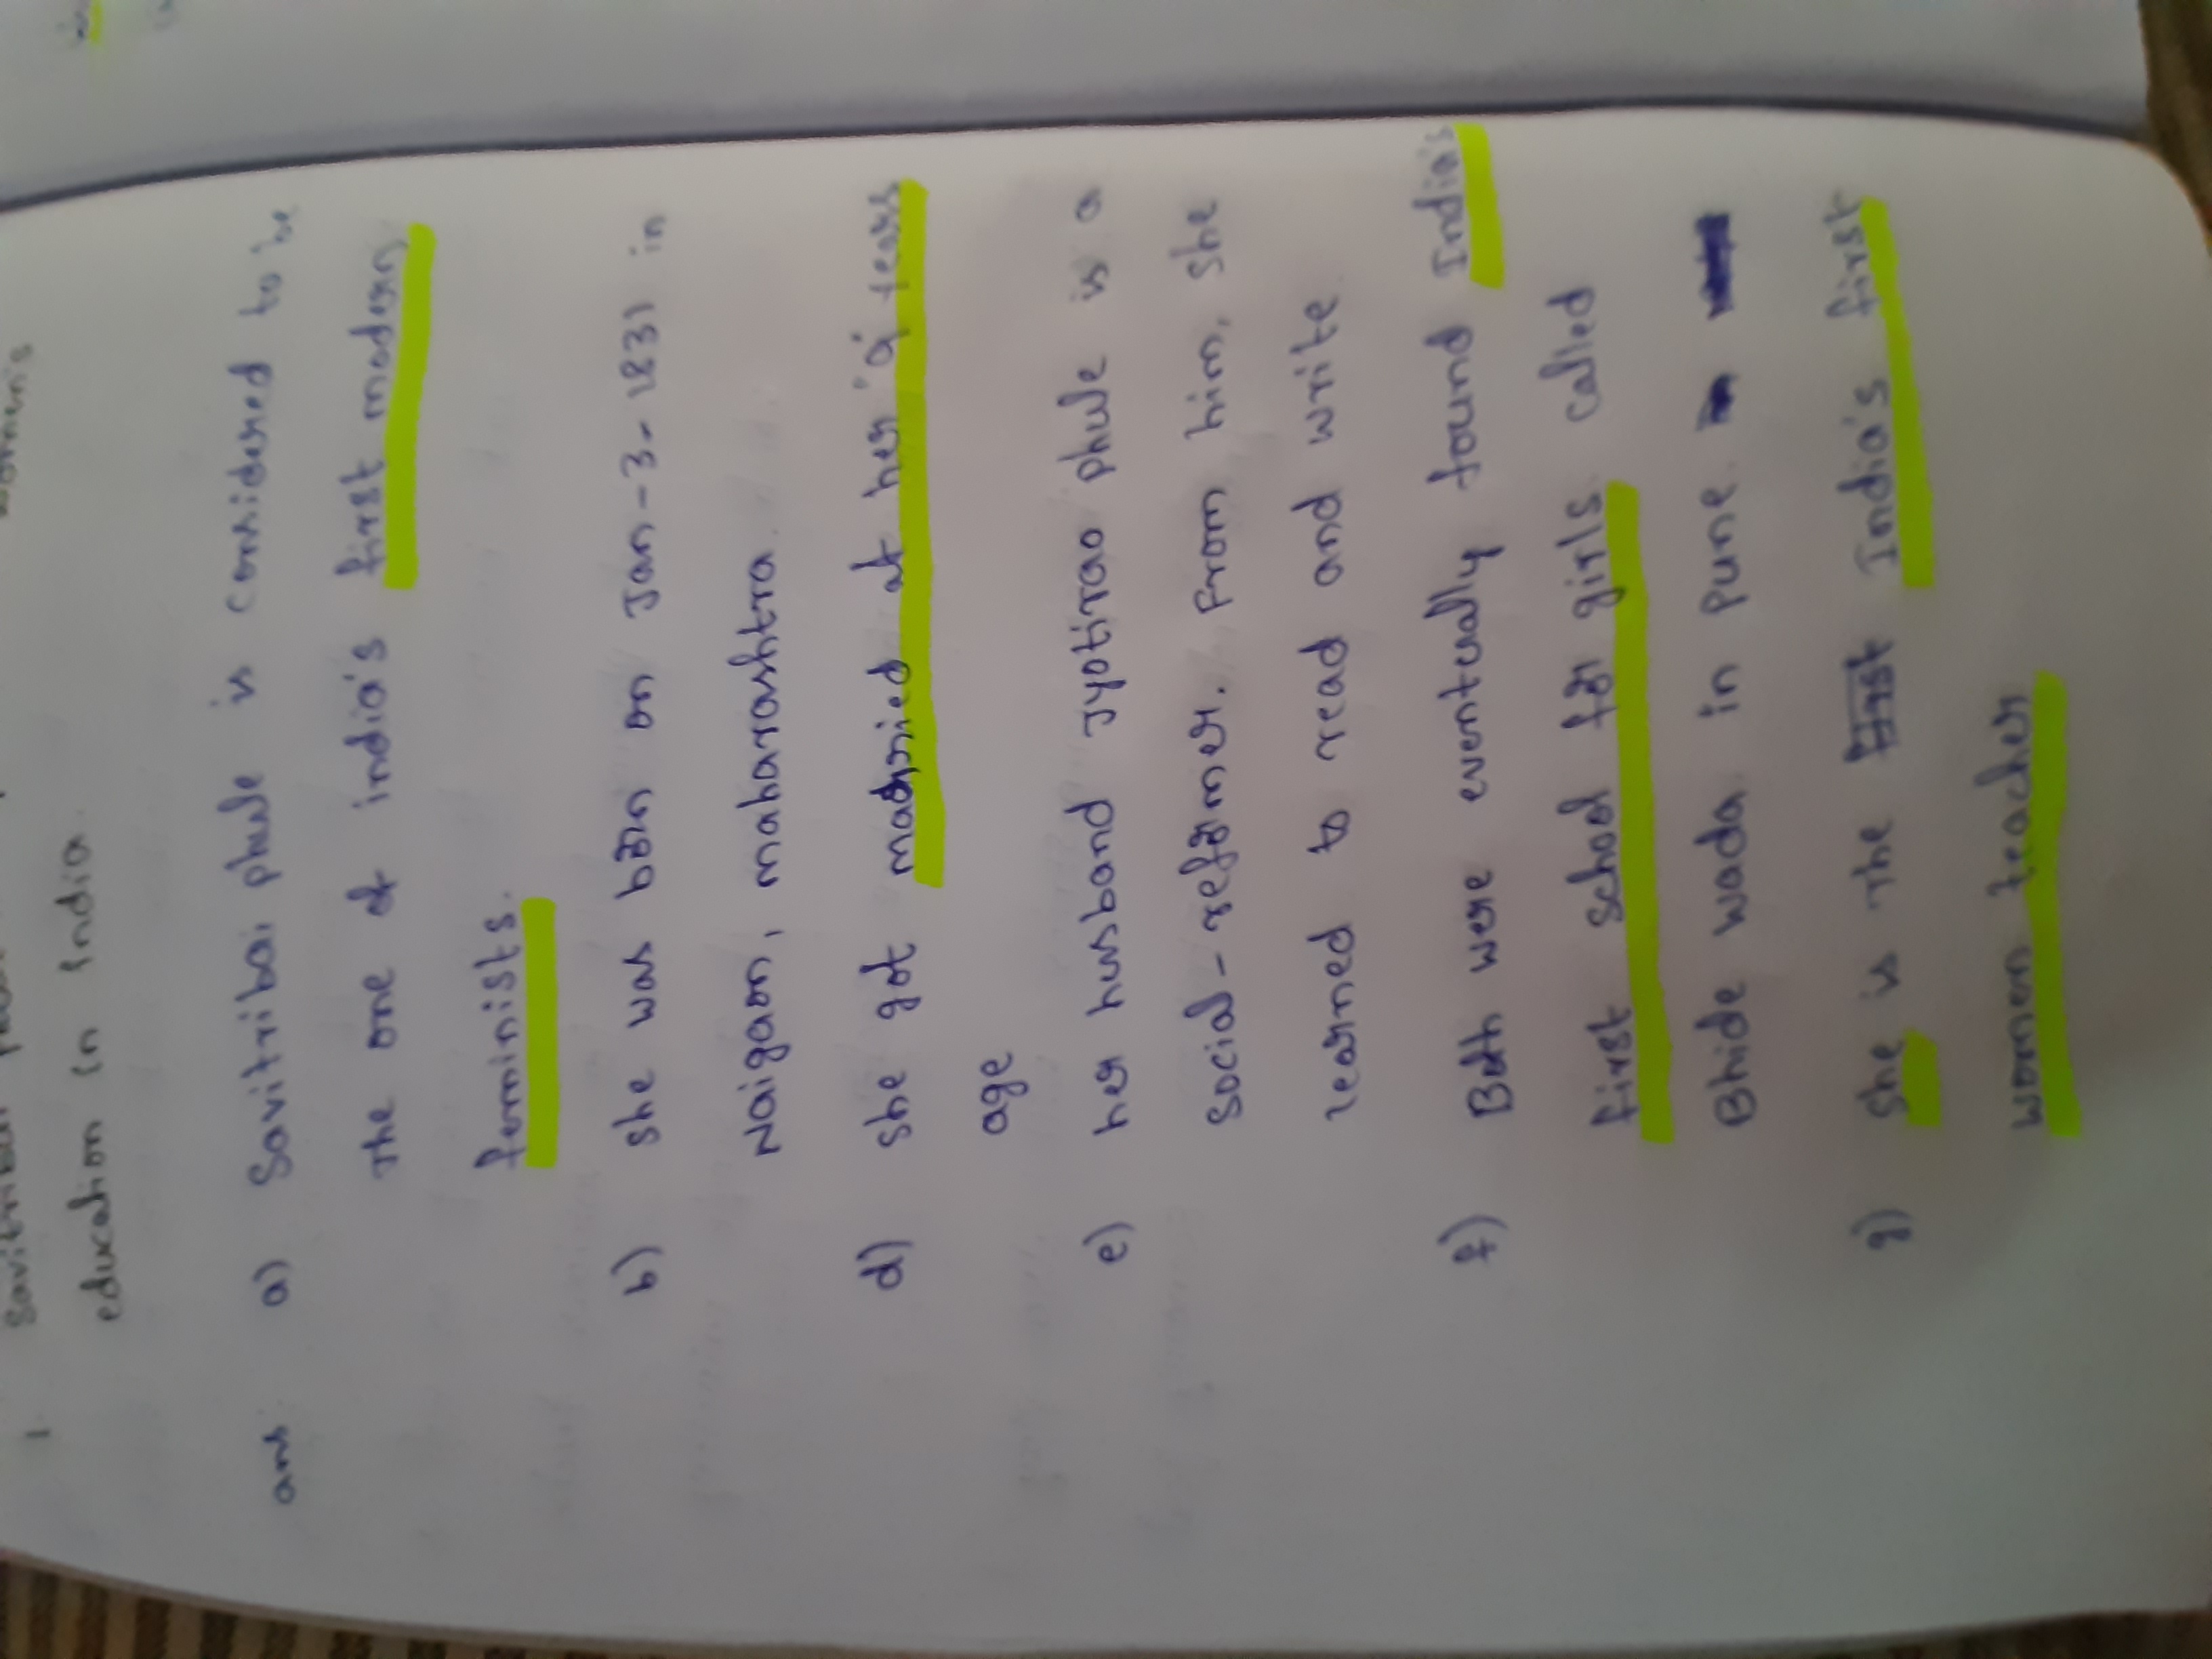 1. Savitribai
women's
education in India.
ans a) Savitribai phule is considered to be
The one of india's first modern
feminists.
b) She was born on Jan-3-1831 in
Naigaon, maharashtra.
d) She got married at her 9 years
age
e) her husband Jyotirao phule is a
social-reformer. From him, she
learned to read and write
f) Both were eventually found India's
first school for girls called
Bhide wada in pune.
g) She is The first India's first
women teacher